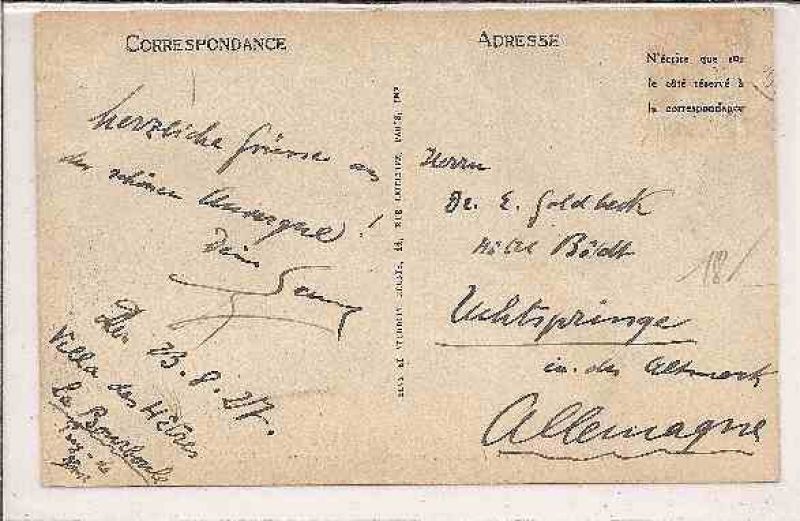 CORRESPONDANCE
ADRESSE
N'écrire que sur
le côté réservé à
la correspondance
herzliche Grüsse aus
der schönen Auvergne!
Dein
Herrn
Dr. E. Goldbeck
Hôtel Böldt
Uchtspringe
in der Altmark
Allemagne
18/
Den 23.8.27.
Villa des Hêtres
La Bourboule
Puy de